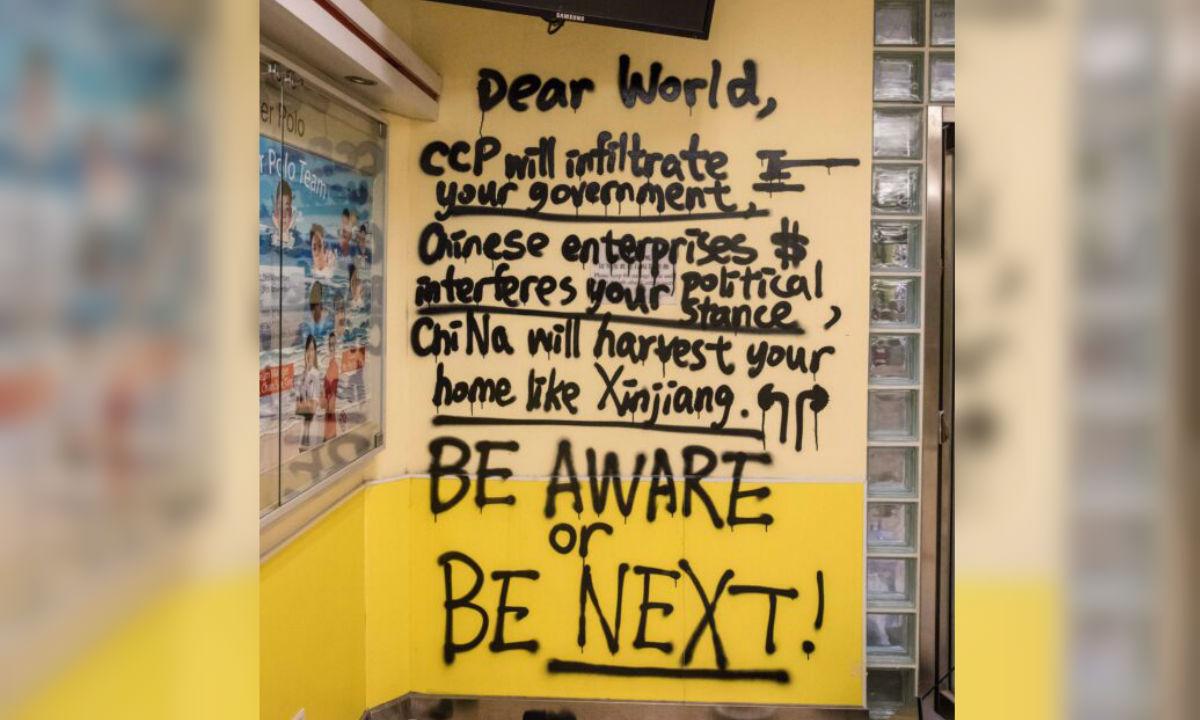 SAMSUNG
er Polo
r Polo Team
Dear World,
CCP will infiltrate
your government,
Chinese enterprises $
interferes your political
stance,
ChiNa will harvest your
home like Xinjiang.
BE AWARE
or
BE NEXT!